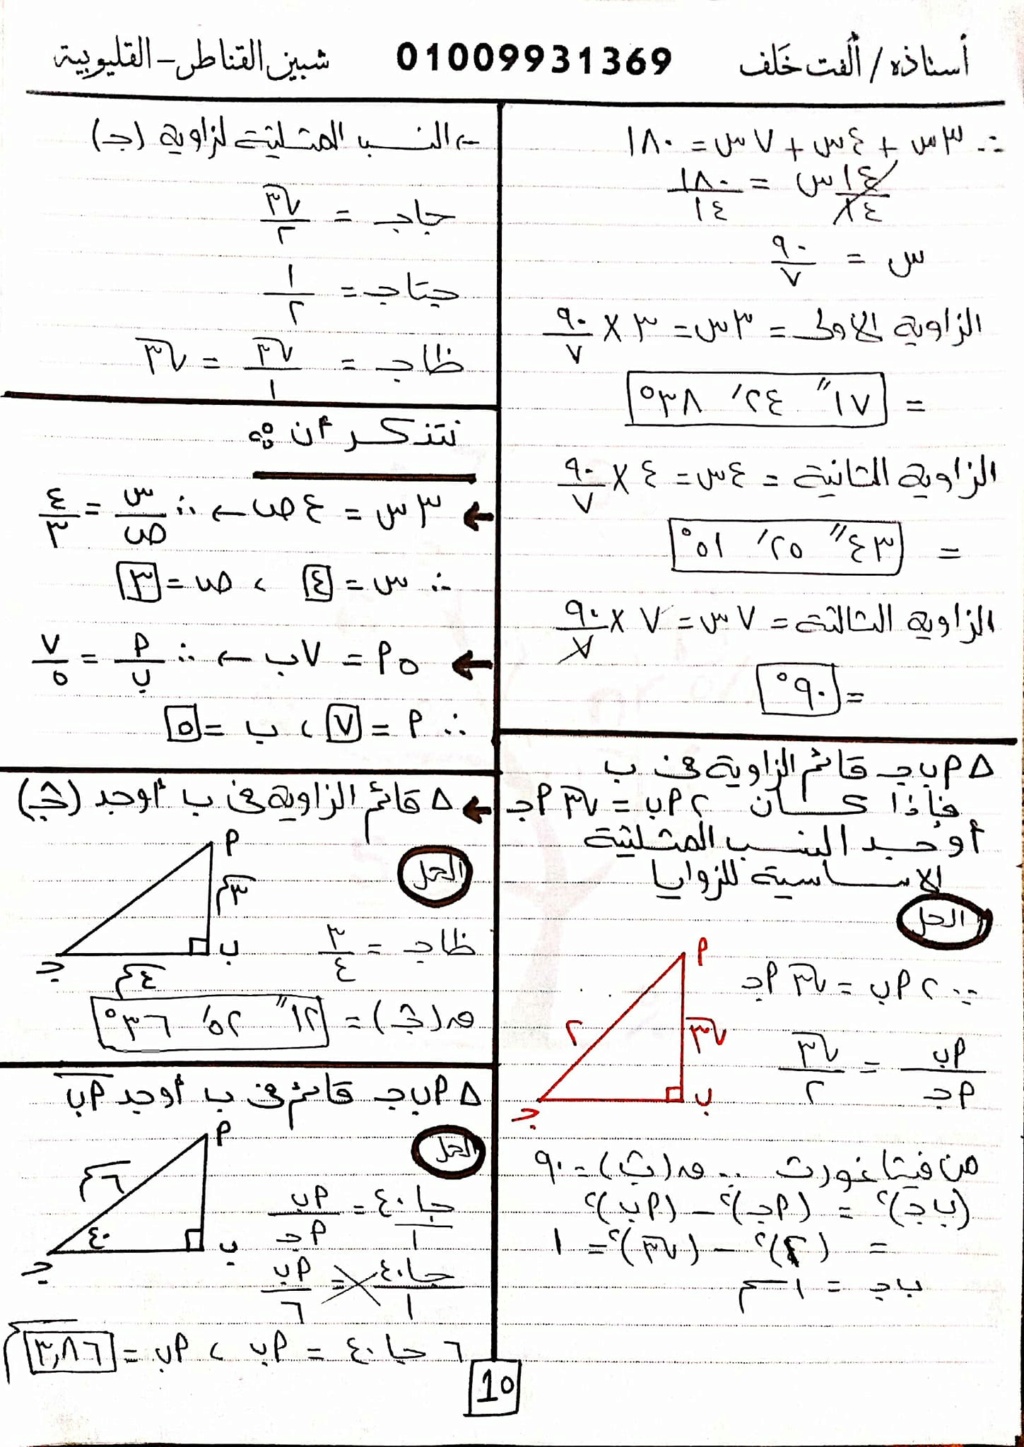 أستاذه / ألفت خلف 01009931369 شبين القناطر - القليوبية
∴ ٣س + ٤س + ٧س = ١٨٠
١٤س/١٤ = ١٨٠/١٤
س = ٩٠/٧
الزاوية الاولى = ٣س = ٣ × ٩٠/٧
= ١٧″ ٣٤′ ٣٨°
الزاوية الثانية = ٤س = ٤ × ٩٠/٧
= ٤٣″ ٢٥′ ٥١°
الزاوية الثالثة = ٧س = ٧ × ٩٠/٧
= ٩٠°
△ أ ب جـ قائم الزاوية فى ب
فإذا كان ٢ أب = √٣ أجـ
أوجد النسب المثلثية
الاساسية للزوايا
الحل
أ
٢
√٣
ب
جـ
∵ ٢ أب = √٣ أجـ
أب/أجـ = √٣/٢
من فيثاغورث ∵ ق(ب) = ٩٠
(ب جـ)² = (أجـ)² - (أب)²
= (٢)² - (√٣)² = ١
ب جـ = ١ سم
← النسب المثلثية لزاوية (جـ)
جا جـ = √٣/٢
جتا جـ = ١/٢
ظا جـ = √٣/١ = √٣
نتذكر أن :
← ٣س = ٤ص ← ∴ س/ص = ٤/٣
∴ س = ٤ ، ص = ٣
← ٥أ = ٧ب ← ∴ أ/ب = ٧/٥
∴ أ = ٧ ، ب = ٥
← △ قائم الزاوية فى ب أوجد (جـ)
الحل
أ
٣سم
ب
٤سم
جـ
ظا جـ = ٣/٤
ق(جـ) = ١٢″ ٥٢′ ٣٦°
△ أ ب جـ قائم فى ب أوجد أب
الحل
أ
٦سم
٤٠
ب
جـ
جا٤٠/١ = أب/أجـ
جا٤٠/١ = أب/٦
٦ جا٤٠ = أب ، أب = ٣,٨٦ سم
١٥